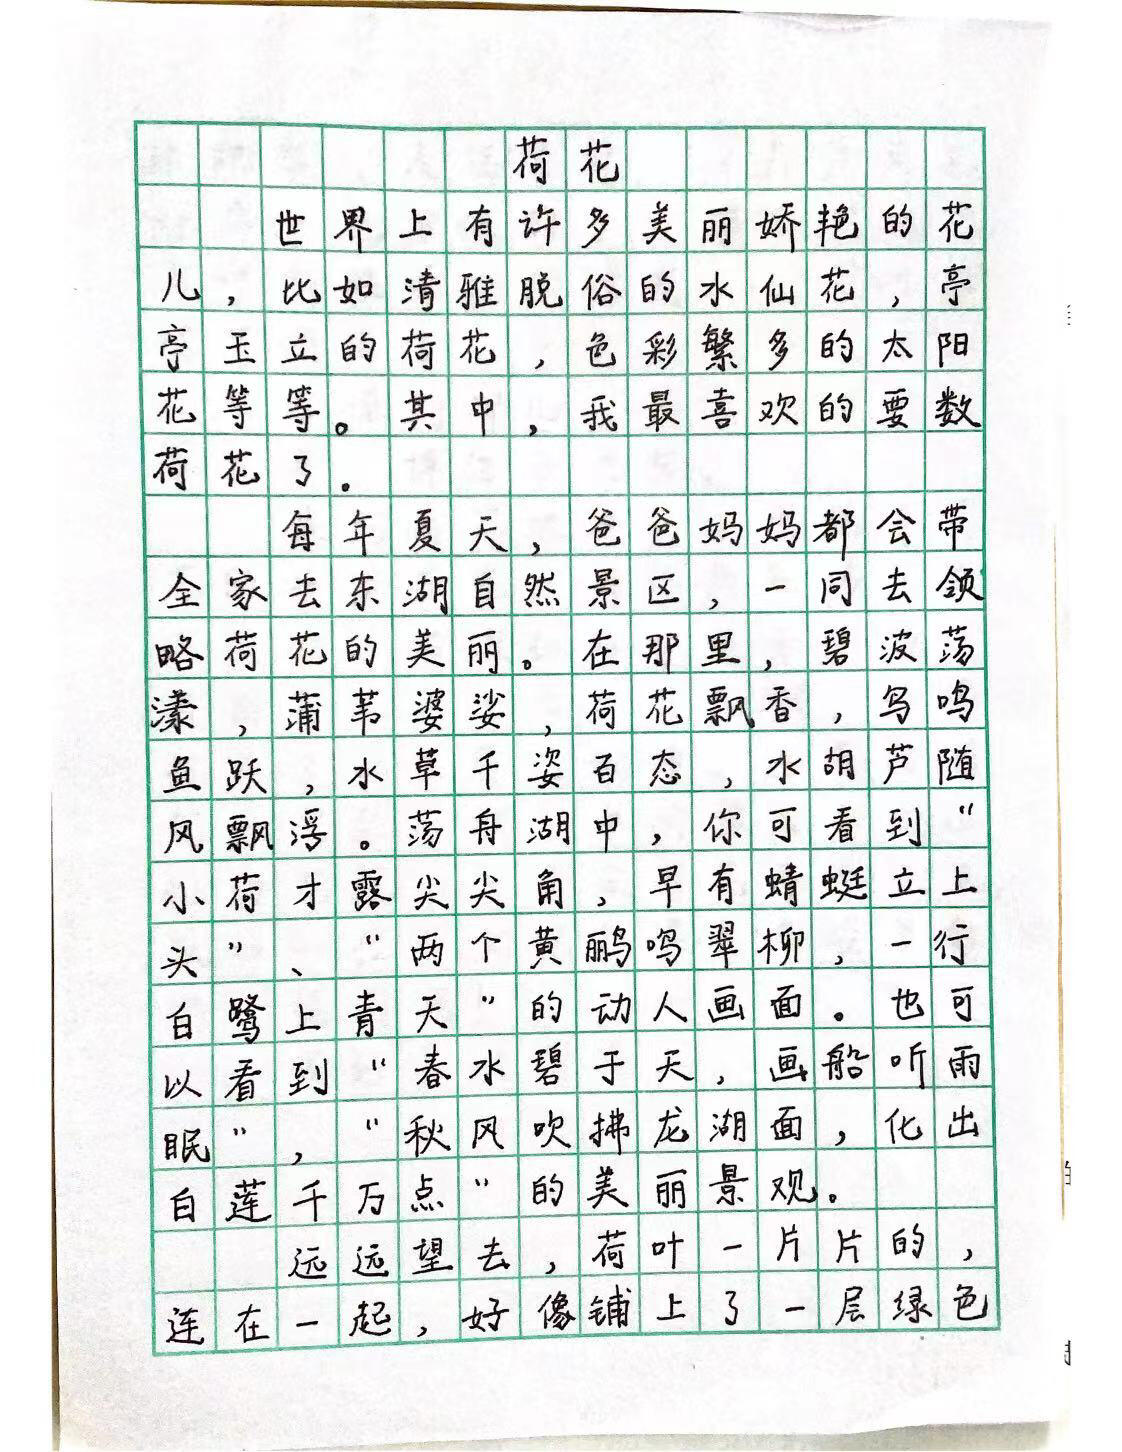 荷花
世界上有许多美丽娇艳的花
儿，比如清雅脱俗的水仙花，亭
亭玉立的荷花，色彩繁多的太阳
花等等。其中，我最喜欢的要数
荷花了。
每年夏天，爸爸妈妈都会带
全家去东湖自然景区，一同去领
略荷花的美丽。在那里，碧波荡
漾，蒲苇婆娑，荷花飘香，鸟鸣
鱼跃，水草千姿百态，水胡芦随
风飘浮。荡舟湖中，你可看到“
小荷才露尖尖角，早有蜻蜓立上
头”、“两个黄鹂鸣翠柳，一行
白鹭上青天”的动人画面。也可
以看到“春水碧于天，画船听雨
眠”，“秋风吹拂龙湖面，化出
白莲千万点”的美丽景观。
远远望去，荷叶一片片的，
连在一起，好像铺上了一层绿色